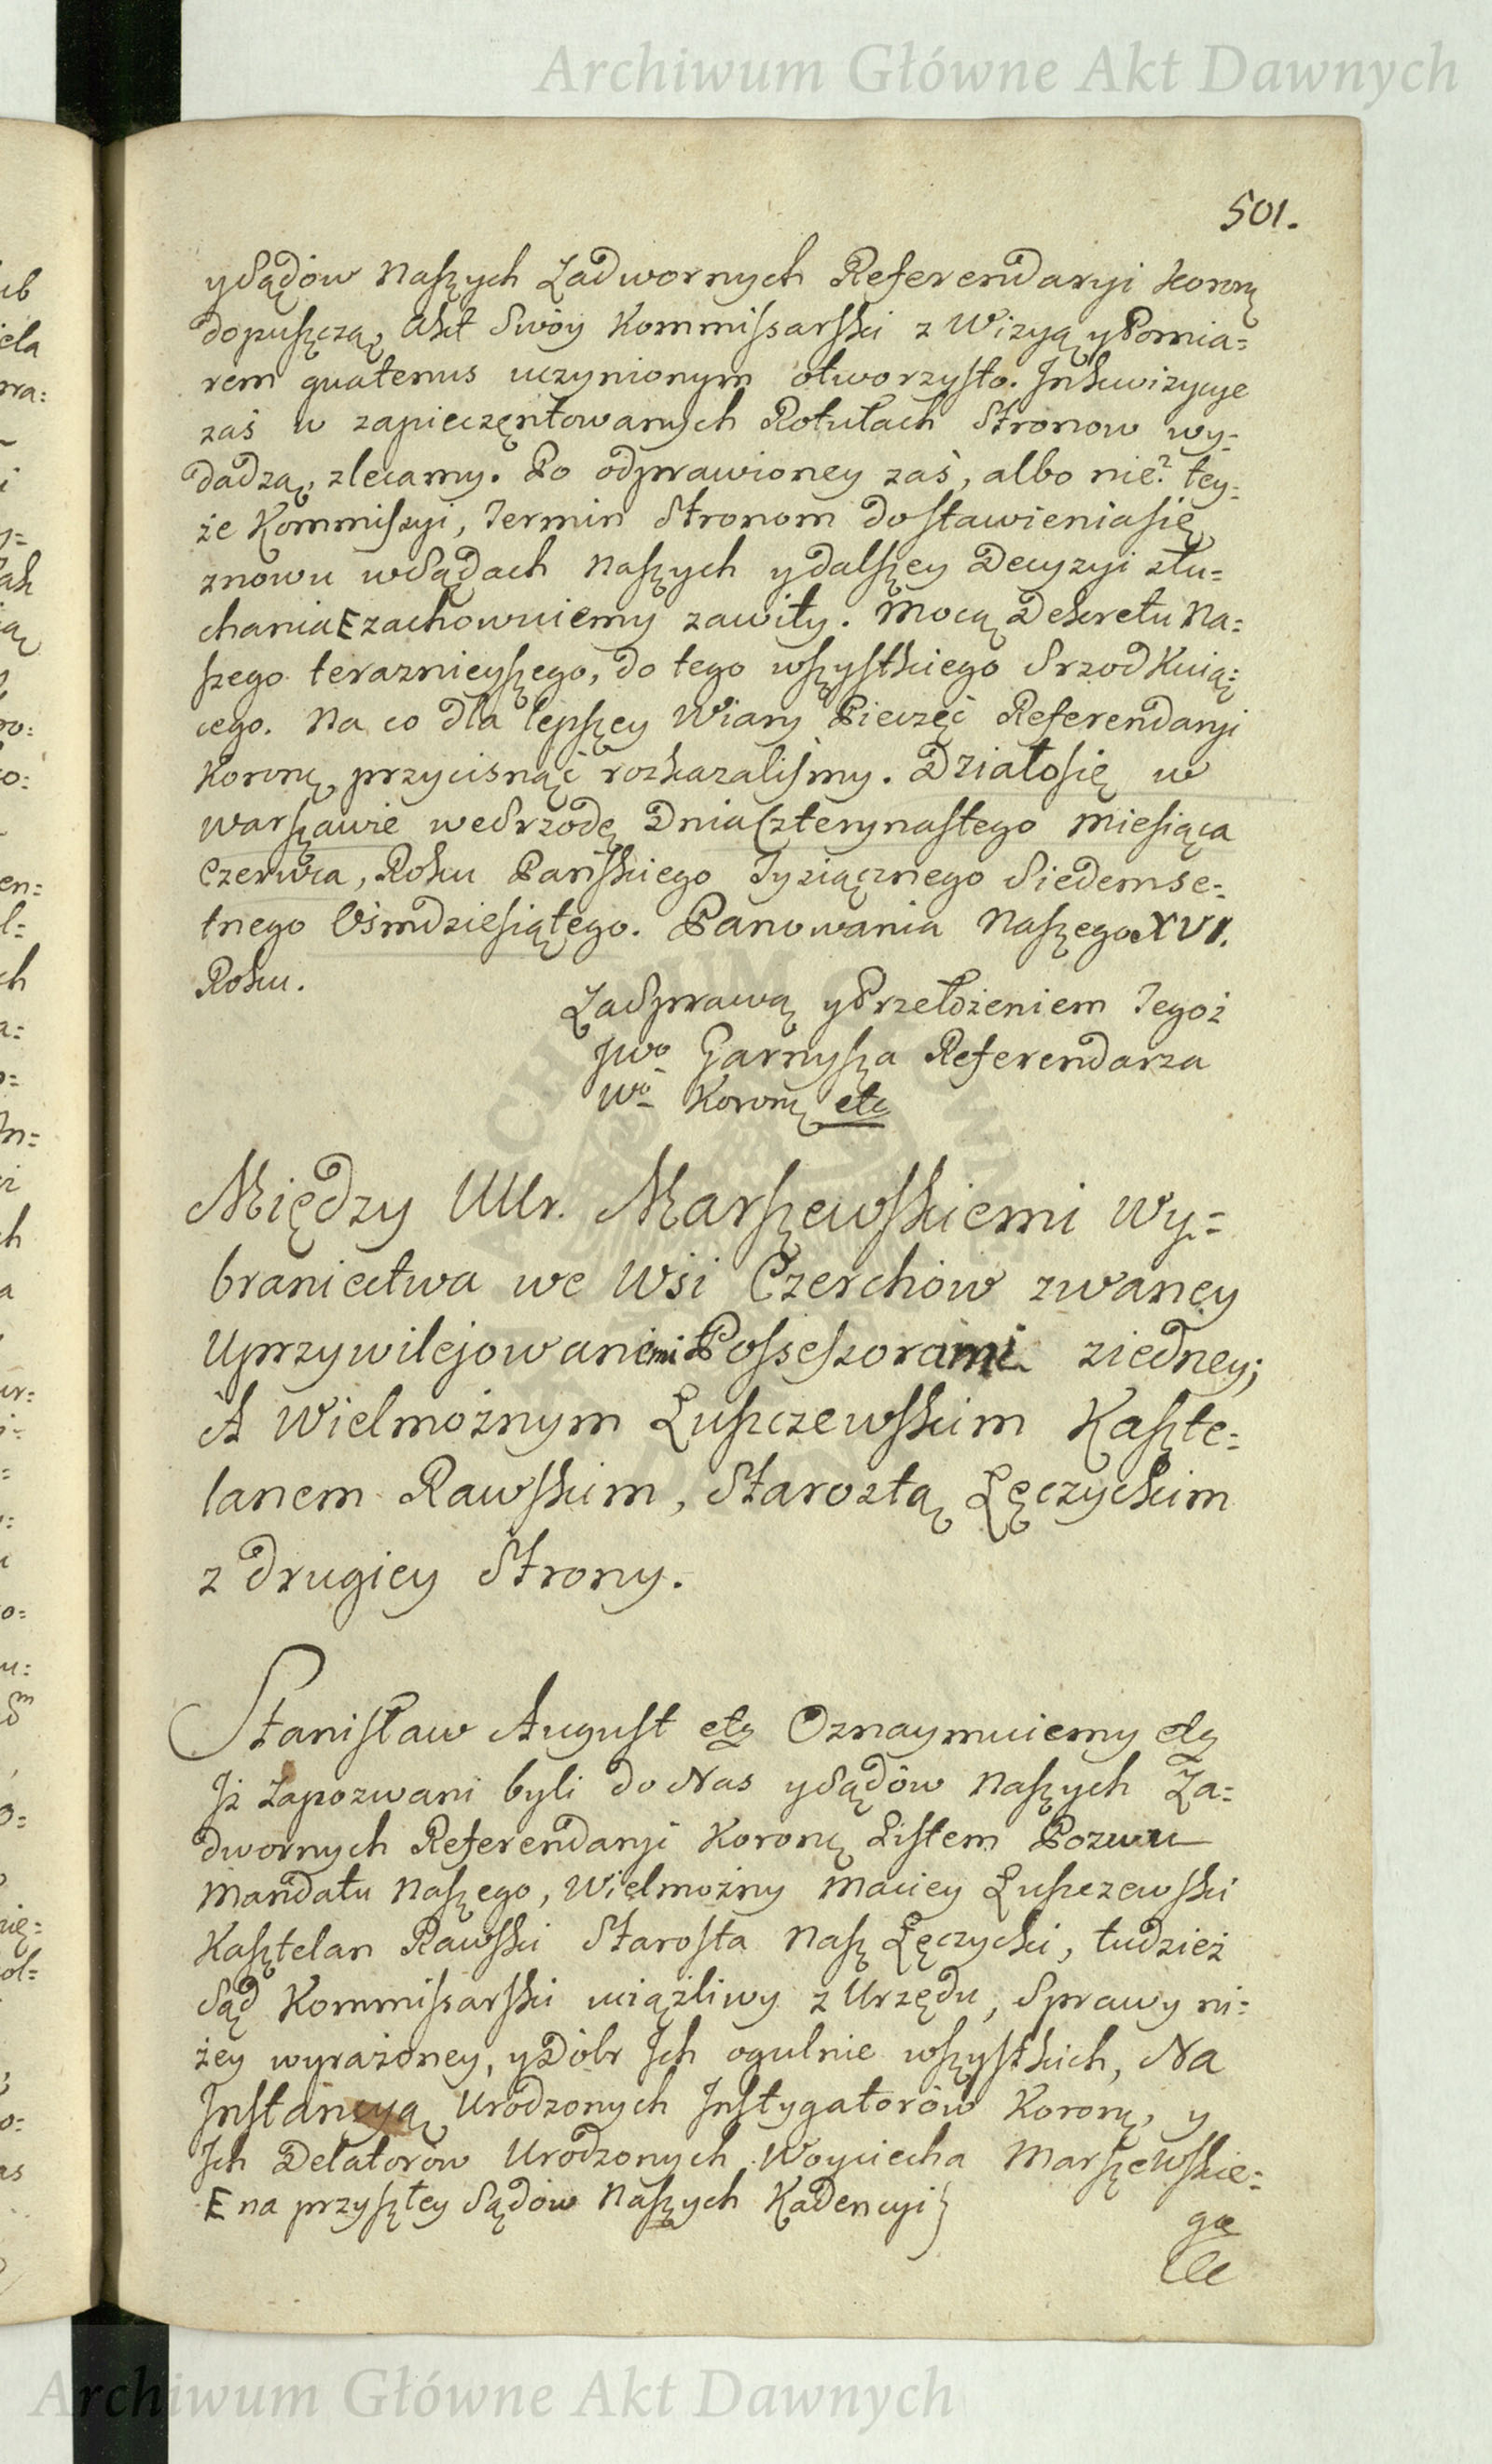 Archiwum Główne Akt Dawnych
501.
y Sądów Naszych Zadwornych Referendaryi Koronę
dopuszczą, Akt Swóy Kommissarski z Wizyą y Pomia=
rem quatenus uczynionym otworzysto. Inkwizycye
zaś w zapieczętowanych Rotułach Stronow wy=
dadzą, zlecamy. Po odprawioney zaś, albo nie? tey=
że Kommiszyi, Termin Stronom do stawienia się
znowu w Sądach Naszych y dalszey Decyzyi słu=
chania E zachowuiemy zawity. Mocą Dekretu Na=
szego teraznieyszego, do tego wszystkiego Srzodkuią=
cego. Na co dla lepszey Wiary Pieczęć Referendaryi
Koronę przycisnąć rozkazaliśmy. Działo się w
Warszawie we Srzodę Dnia Czterynastego Miesiąca
Czerwca, Roku Pańskiego Tysiącznego Siedemse=
tnego Ośmdziesiątego. Panowania Naszego XVI.
Roku.
Za Sprawą y Przełożeniem Tegoż
JWo Garnysza Referendarza
Wo Koronę etc
Między UUr. Marszewskiemi Wy=
braniectwa we Wsi Czerchów zwaney
Uprzywilejowanemi Possessorami z iedney;
A Wielmożnym Łuszczewskim Kaszte=
lanem Rawskim, Starostą Łęczyckim
z drugiey Strony.
Stanisław August etc Oznaymuiemy etc
Iż Zapozwani byli do Nas y Sądów Naszych Za=
dwornych Referendaryi Koronę Listem Pozwu
Mandatu Naszego, Wielmożny Maciey Łuszczewski
Kasztelan Rawski Starosta Nasz Łęczycki, tudzież
Sąd Kommissarski uciążliwy z Urzędu, Sprawy ni=
żey wyrażoney, y Dóbr Ich ogulnie wszystkich, Na
Instancyą Urodzonych Instygatorów Koronę, y
Ich Delatorów Urodzonych Woyciecha Marszewskie=
E na przyszłey Sądów Naszych Kadencyi}
go
Archiwum Główne Akt Dawnych